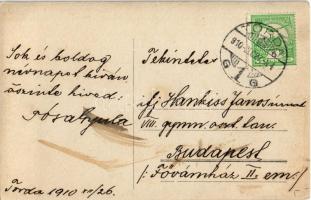 Sok és boldog
névnapot kíván
őszinte híved:
Pósa Gyula
Torda 1910 VI/26.
Tekintetes
ifj Hankiss János úrnak
VIII. gymn. oszt. tan.
Budapest
/: Fővámház II em :/